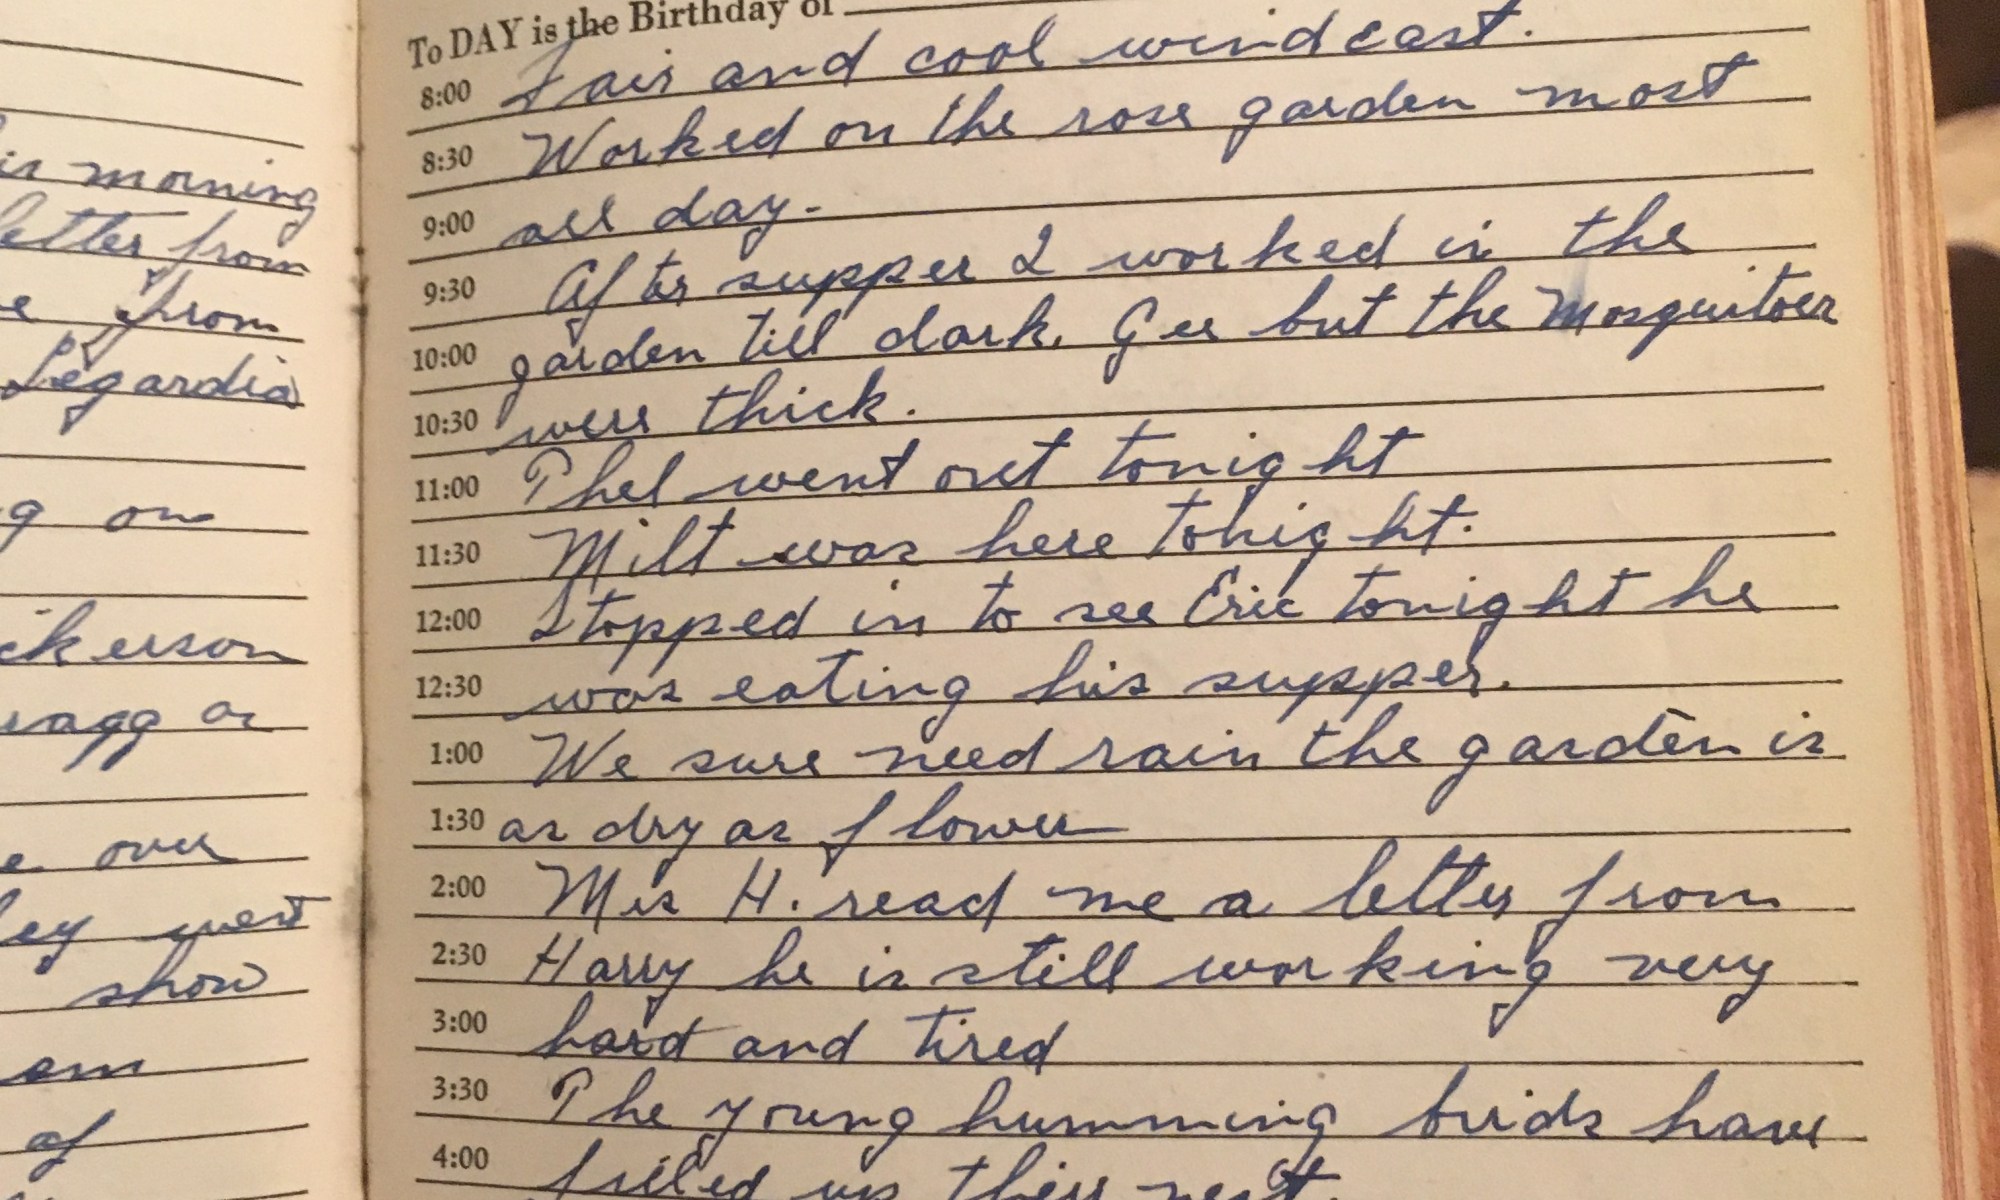 is morning
letter from
e from
Legardia
g on
ckerson
ragg or
e over
ley went
show
am
of
To DAY is the Birthday of
8:00 Fair and cool wind east.
8:30 Worked on the rose garden most
9:00 all day.
9:30 After supper I worked in the
10:00 garden till dark. Gee but the Mosquitoes
10:30 were thick.
11:00 Phel went out tonight
11:30 Milt was here tonight.
12:00 Stopped in to see Eric tonight he
12:30 was eating his supper.
1:00 We sure need rain the garden is
1:30 as dry as flower
2:00 Mrs H. read me a letter from
2:30 Harry he is still working very
3:00 hard and tired
3:30 The young humming birds have
4:00 filled up their nest.